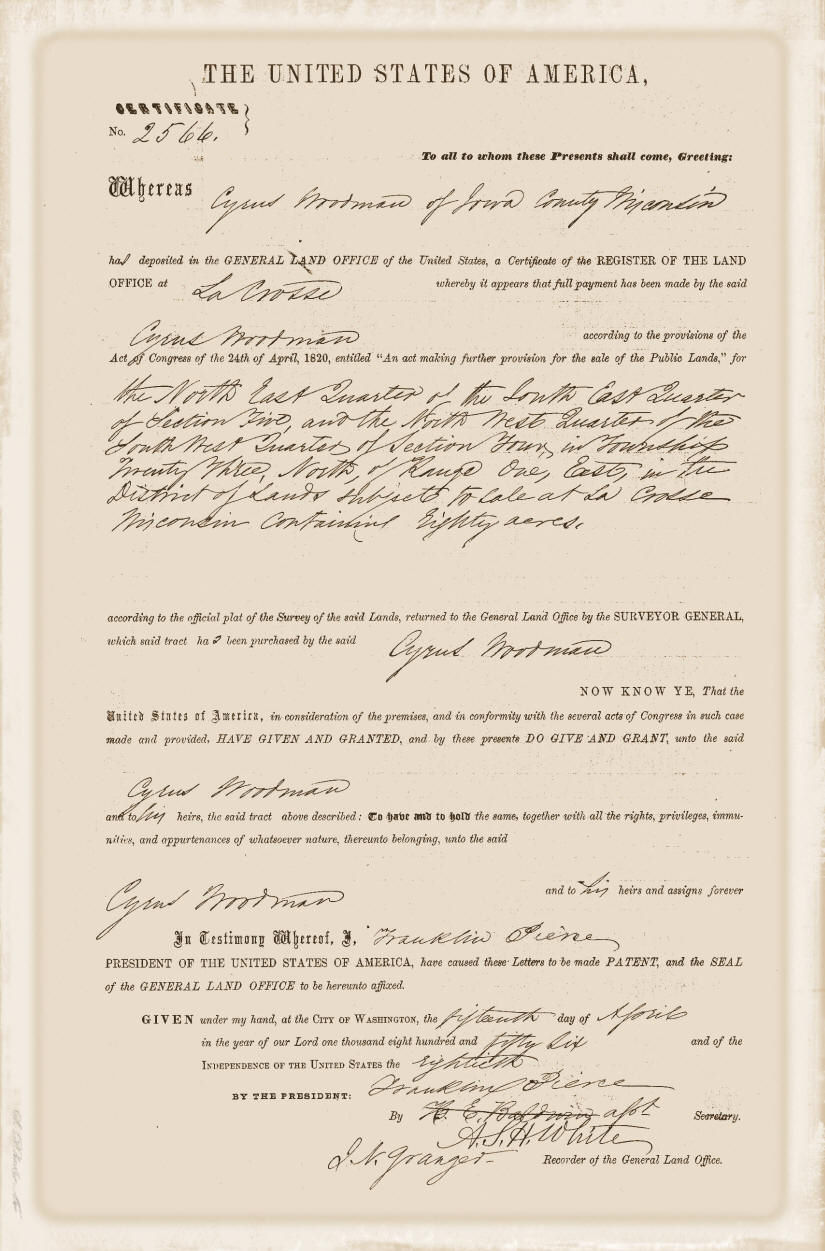 THE UNITED STATES OF AMERICA,
CERTIFICATE
No. 2566.
To all to whom these Presents shall come, Greeting:
Whereas Cyrus Woodman of Iowa County Wisconsin
has deposited in the GENERAL LAND OFFICE of the United States, a Certificate of the REGISTER OF THE LAND
OFFICE at La Crosse whereby it appears that full payment has been made by the said
Cyrus Woodman according to the provisions of the
Act of Congress of the 24th of April, 1820, entitled "An act making further provision for the sale of the Public Lands," for
the North East Quarter of the South East Quarter
of Section Five, and the North West Quarter of the
South West Quarter of Section Four, in Township
Twenty Three, North, of Range One, East, in the
District of Lands subject to Sale at La Crosse
Wisconsin Containing Eighty acres.
according to the official plat of the Survey of the said Lands, returned to the General Land Office by the SURVEYOR GENERAL,
which said tract has been purchased by the said Cyrus Woodman
NOW KNOW YE, That the
United States of America, in consideration of the premises, and in conformity with the several acts of Congress in such case
made and provided, HAVE GIVEN AND GRANTED, and by these presents DO GIVE AND GRANT, unto the said
Cyrus Woodman
and to his heirs, the said tract above described: To have and to hold the same, together with all the rights, privileges, immu-
nities, and appurtenances of whatsoever nature, thereunto belonging, unto the said
Cyrus Woodman and to his heirs and assigns forever
In Testimony Whereof, I, Franklin Pierce
PRESIDENT OF THE UNITED STATES OF AMERICA, have caused these Letters to be made PATENT, and the SEAL
of the GENERAL LAND OFFICE to be hereunto affixed.
GIVEN under my hand, at the CITY OF WASHINGTON, the fifteenth day of April
in the year of our Lord one thousand eight hundred and fifty six and of the
INDEPENDENCE OF THE UNITED STATES the eightieth
BY THE PRESIDENT: Franklin Pierce
By H. E. Baldwin asst Secretary.
A. S. H. White
J. N. Granger Recorder of the General Land Office.